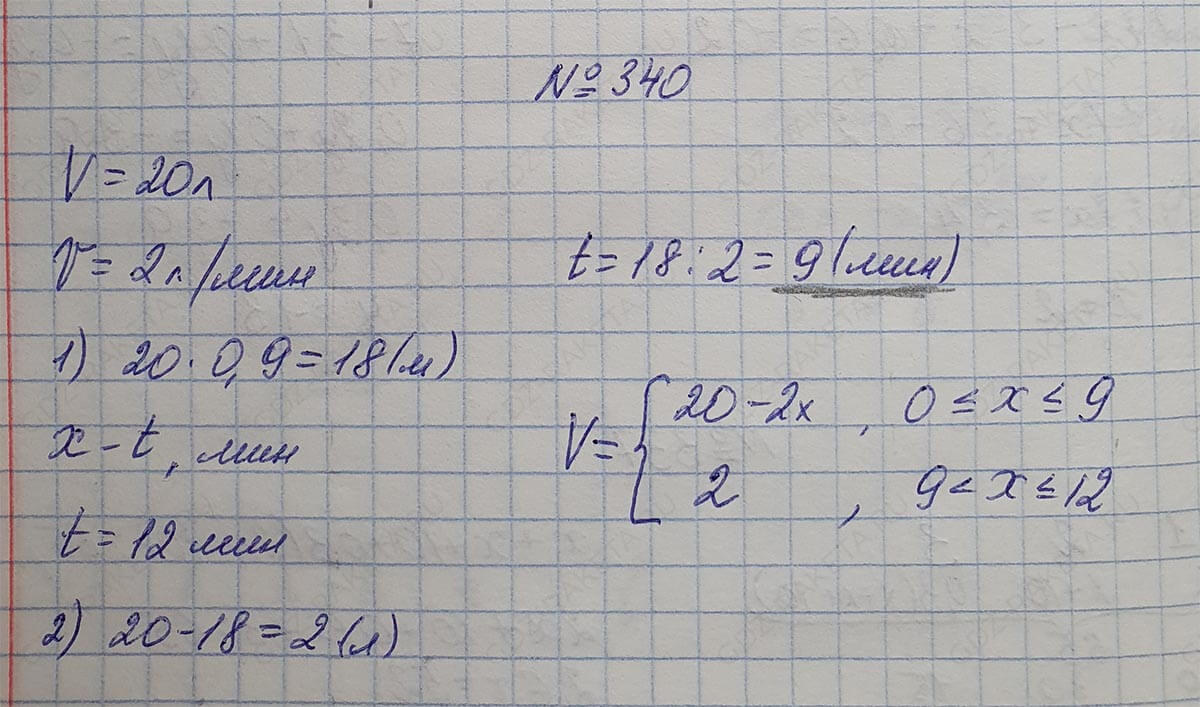 № 340
V = 20л
V = 2л/мин
1) 20 · 0,9 = 18 (л)
x – t, мин
t = 12 мин
2) 20 – 18 = 2 (л)
t = 18 : 2 = 9 (мин)
V = { 20 – 2x , 0 ≤ x ≤ 9
2 , 9 < x ≤ 12